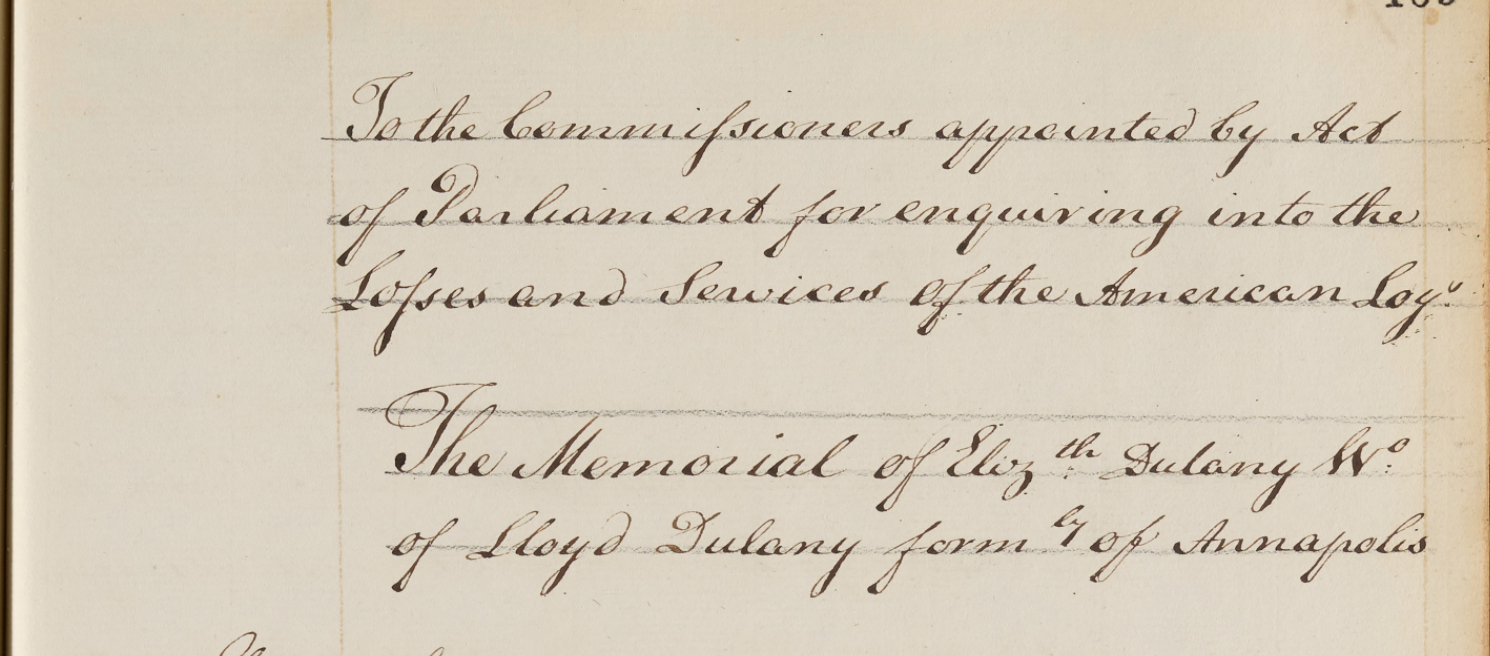 To the Commiſsioners appointed by Act
of Parliament for enquiring into the
Loſses and Services of the American Loyˢ.
The Memorial of Elizᵗʰ. Dulany Wᵒ.
of Lloyd Dulany formˡʸ of Annapolis